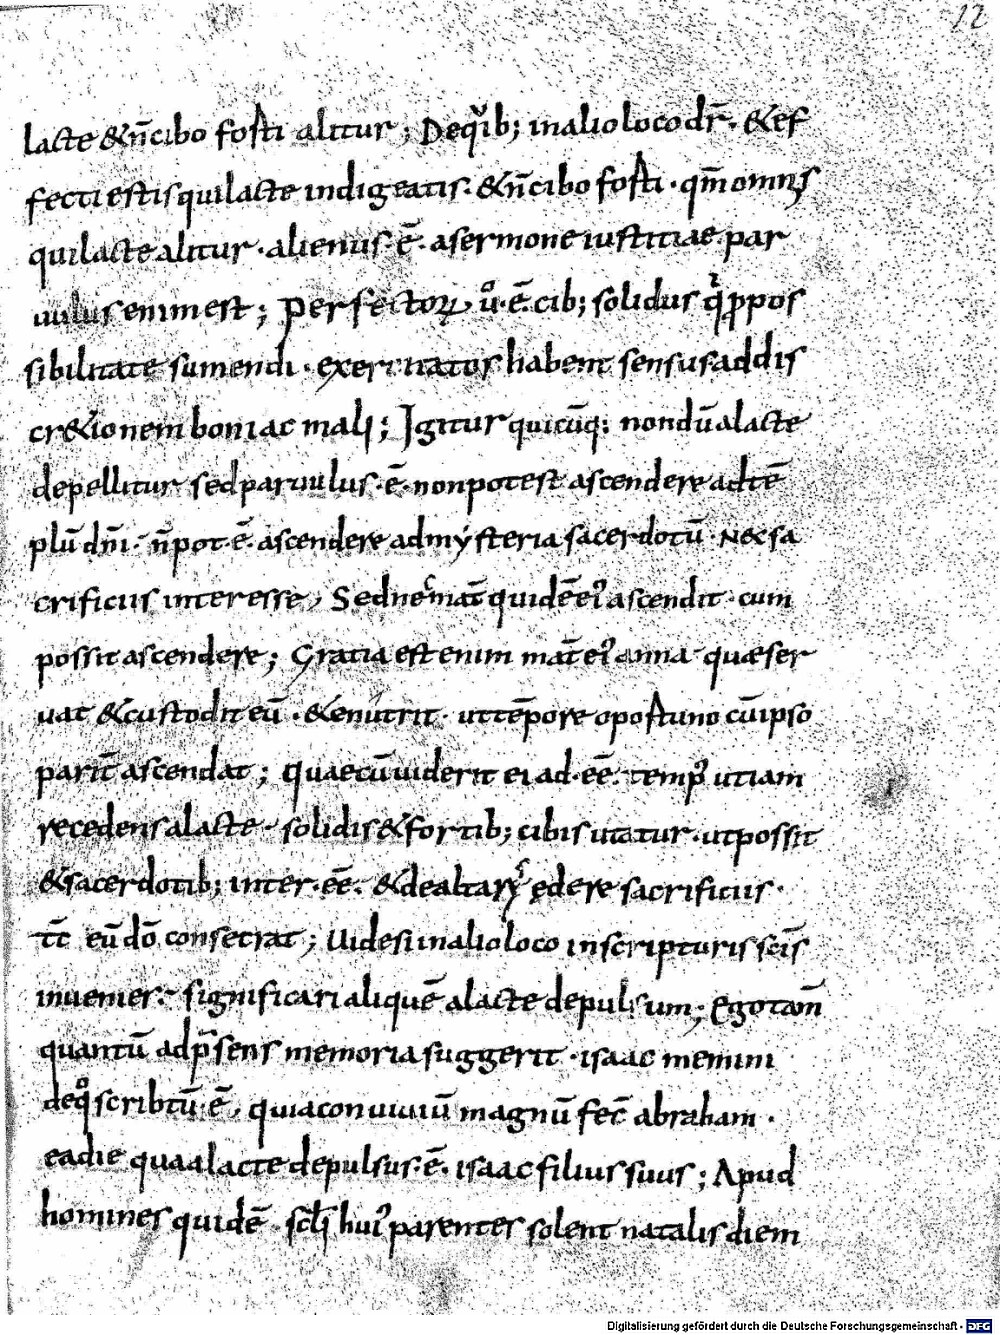 12
lacte & n̄ cibo forti alitur; De quib; in alio loco dr̄. & ef
fecti estis qui lacte indigeatis. & n̄ cibo forti. qm̄ omnis
qui lacte alitur. alienus ē. a sermone iustitiae. par
uulus enim est; Perfectoꝝ uͦ. ē. cib; solidus qͥ p̱ pos
sibilitate sumendi. exercitatos habent sensus ad dis
cr&ionem boni ac mali; Igitur quicūq; nondū a lacte
depellitur sed paruulus. ē. non potest ascendere ad tē
plū dn̄i. n̄ pot. ē. ascendere ad mẏsteria sacerdotū. Nec sa
crificiis interesse, Sed nec mat̄ quidē eiꝰ ascendit. cum
possit ascendere; Gratia est enim mat̄ eiꝰ anna. quae ser
uat & custodit eū. & enutrit. ut tēpore oportuno cū ipso
parit̄ ascendat; quae cū uiderit ei ad. eē. tempꝰ ut iam
recedens a lacte. solidis & fortib; cibis utatur. ut possit
& sacerdotib; inter. eē. & de altarys edere sacrificiis.
tc̄ eū dō consecrat; Uide si in alio loco in scripturis scīs
inuenies. significari aliquē a lacte depulsum; Ego tam̄
quantū ad p̄sens memoria suggerit. isaac memini
de qͦ scribtū. ē. quia conuiuiū magnū fec̄ abraham.
ea die qua a lacte depulsus. ē. isaac filius suus; Apud
homines quidē. scl̄i huiꝰ parentes solent natalis diem
Digitalisierung gefördert durch die Deutsche Forschungsgemeinschaft - DFG